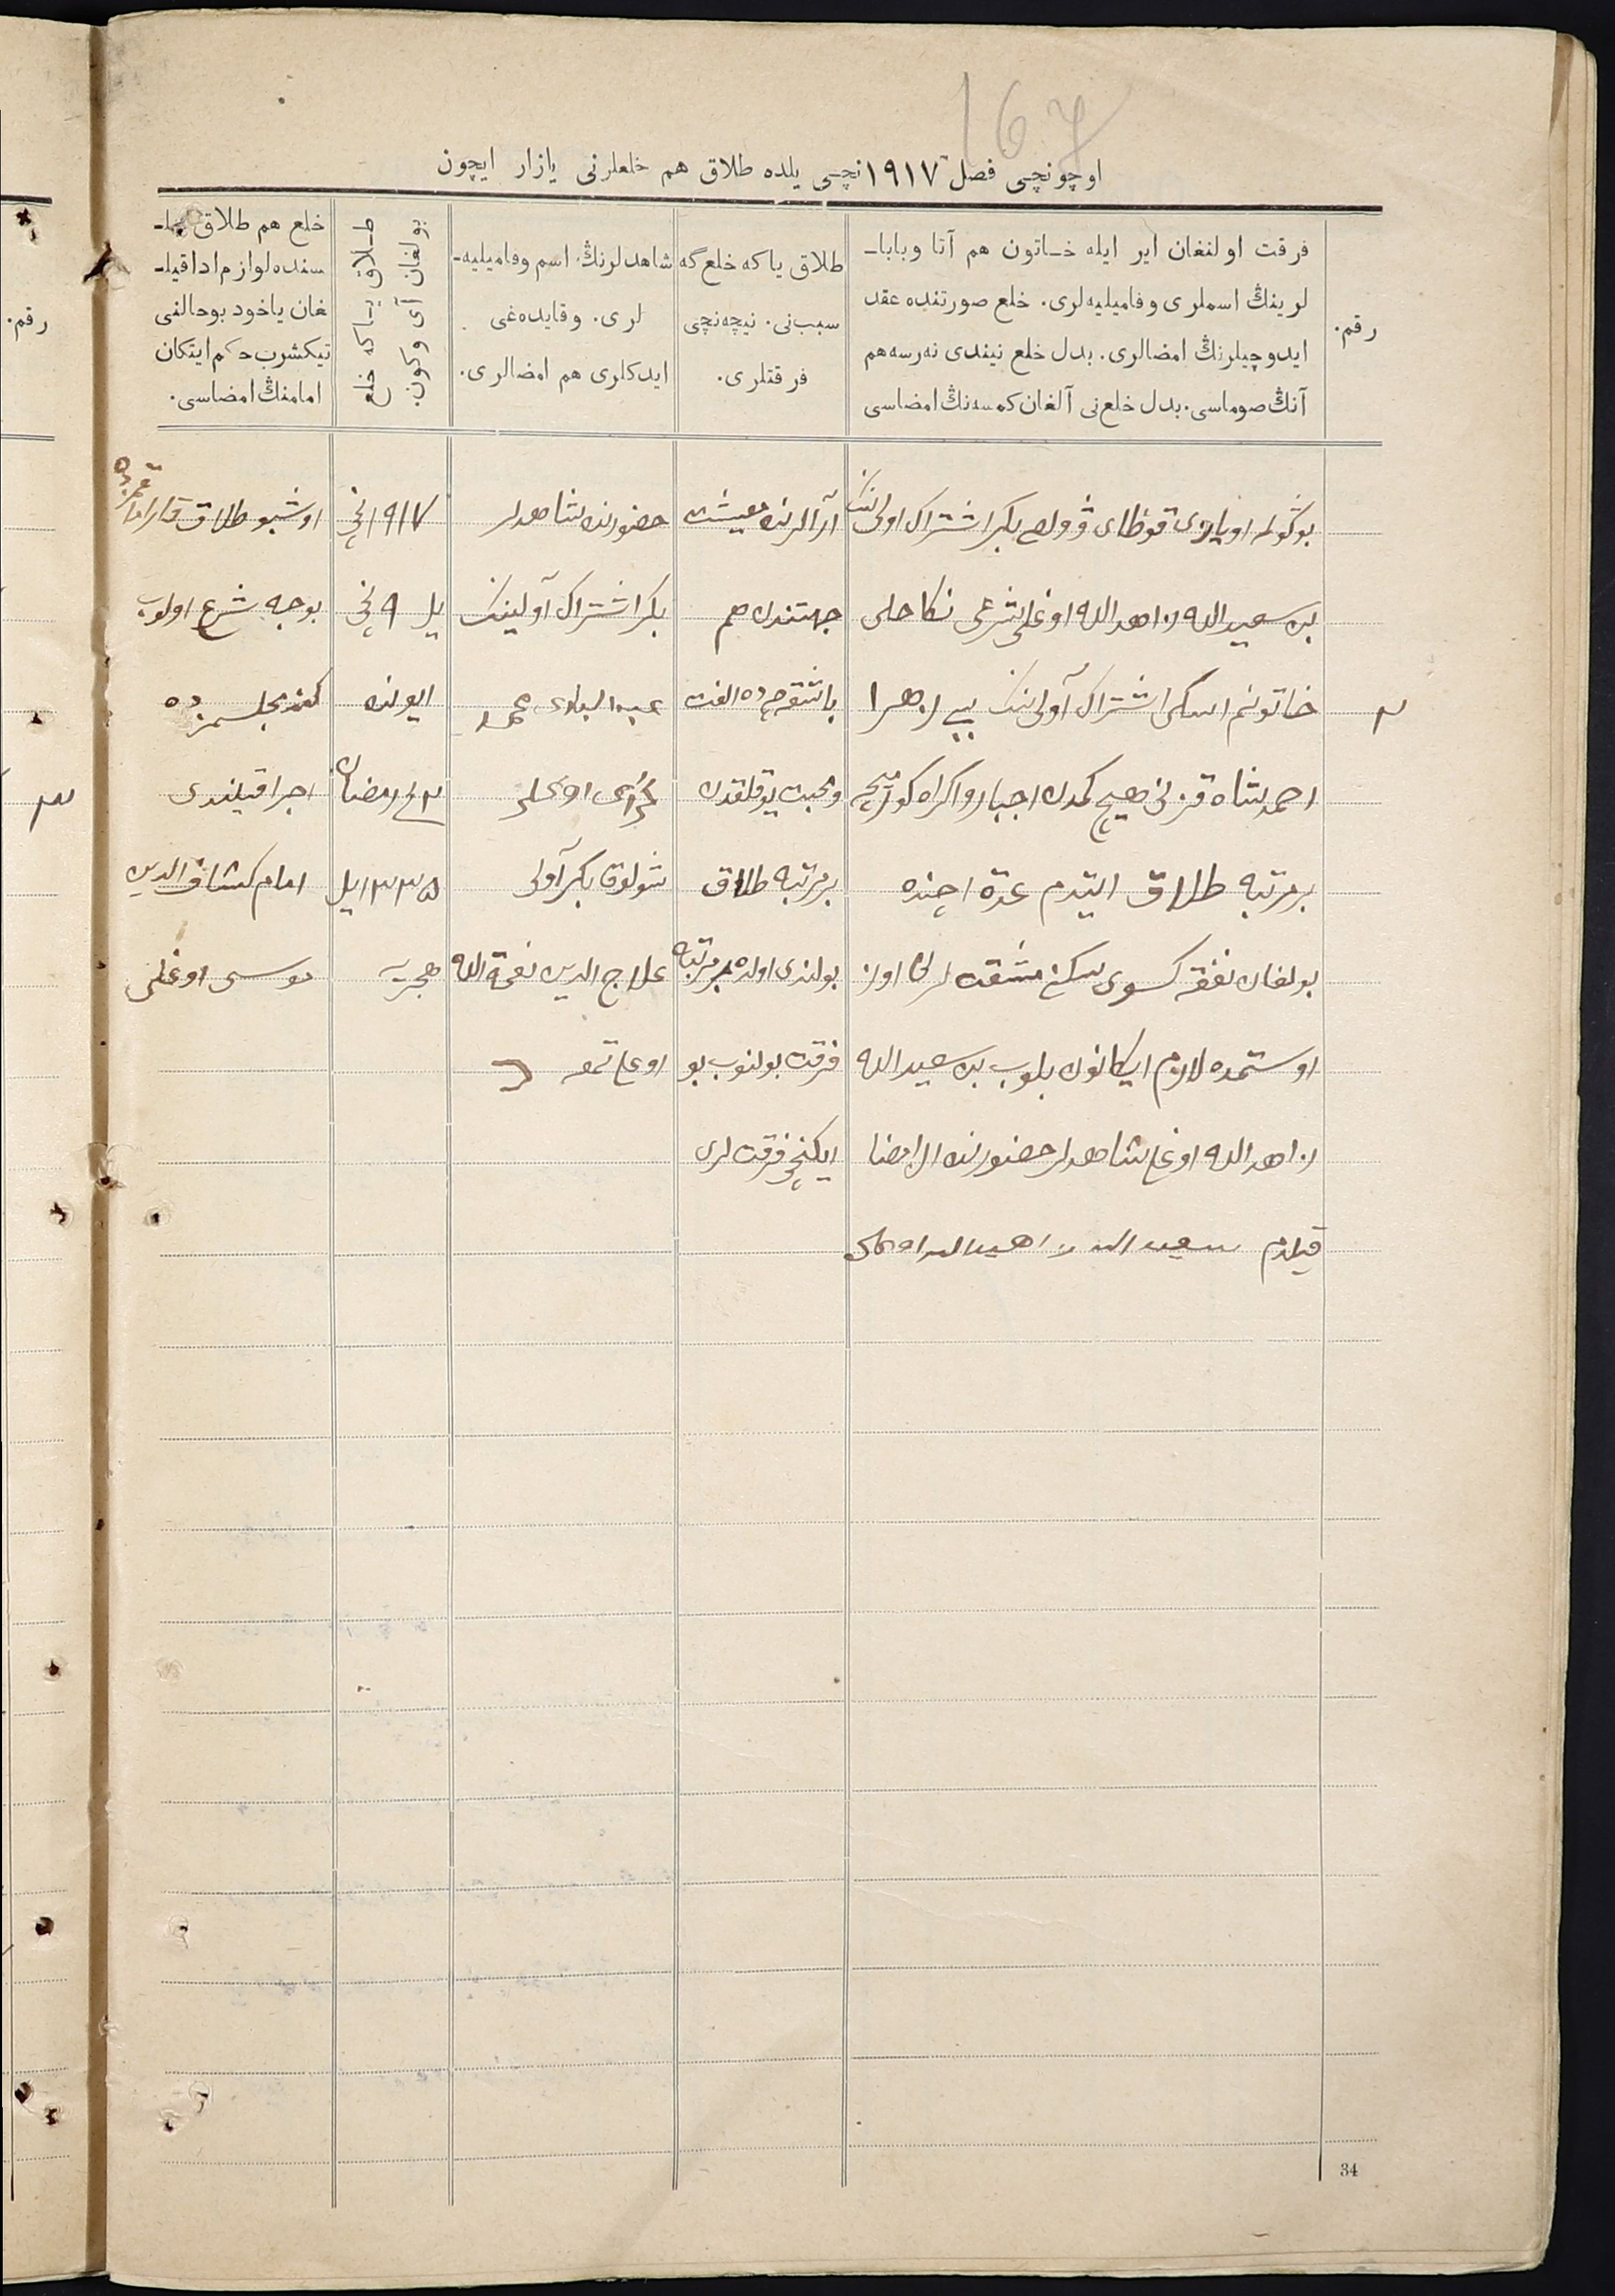 167
اوچونچی فصل ١٩١٧ نچی یلده طلاق هم خلعلرنی یازار ایچون
رقم.
فرقت اولنغان ایر ایله خاتون هم آتا وبابا-
لرینڭ اسملری وفامیلیه‌لری. خلع صورتنده عقد
ایدوچیلرنڭ امضالری. بدل خلع نیندی نه‌رسه هم
آنڭ صوماسی. بدل خلع‌نی آلغان کمسه‌نڭ امضاسی
طلاق یاکه خلع گه
سبب‌نی. نیچه‌نچی
فرقتلری.
شاهدلرنڭ اسم وفامیلیه-
لری. وقایده‌غی
ایدکلری هم امضالری.
طلاق یاکه خلع
بولغان آی وکون.
خلع هم طلاق
سنده لوازم ادا قیلـ
غان یاخود بوحالنی
تیکشرب حکم ایتکان
امامنڭ امضاسی.
٢
اویازی بکر اشتراک اولی‌ننک
بن سعید الله زاهد الله اوغلی شرعی نکاحلی
خاتونم اسکی اشتراک آولی‌ننک بی‌بی زهرا
احمدشاه قزنی هیچ کمدن اجبار واکراه کورمیچه
بر مرتبه طلاق ایتدم عدة اچنده
بولغان نفقه کسوی سکنی مشقت لرنی اوز
اوستمده لازم ایکانون بلوب بن سعید الله
زاهد الله اوغلی شاهدلر حضورنده ال امضا
قیلدم
آرالرنده معیشت
جهتندن هم
الفت
ومحبت یوقلقدن
بر مرتبه طلاق
بولندی اولده بر مرتبه
فرقت بولنوب بو
ایکنچی فرقت لری
حضورنده شاهدلر
بکر اشتراک آولینک
عبد الباری محمد
اوغلی
شولوق بکر آولی
علاج الدین نعمة الله
اوغلی
١٩١٧نچی
یل ٩نچی
ایونده
رمضان
١٣٣٥ یل
هجریه
اوشبو طلاق
بوجه شرع اولوب
کنه مجلسمزده
اجرا قیلندی
امام کشاف الدین
موسی اوغلی
رقم.
٣
34